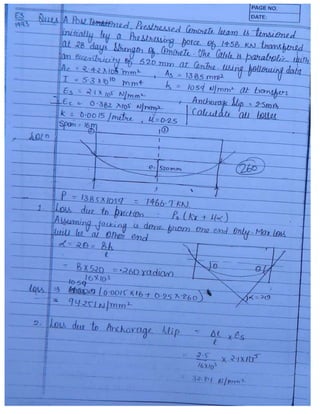 PAGE NO.
DATE:
ES
1993
Ques A Post Tensioned, Prestressed Concrete beam is tensioned
initially by a Prestressing force of 1458 KN transferred
at 28 days strength of Concrete. The Cable is parabolic with
an eccentricity of 520 mm at Centre using following data
Ac = 2.42×10⁵ mm² As = 1385 mm²
I = 5.3×10¹⁰ mm⁴ h = 1059 N/mm² at transfer
Es = 2.1×10⁵ N/mm² Anchorage slip = 2.5mm
Ec = 0.382 ×10⁵ N/mm² Calculate all losses
K = 0.0015 /metre, μ = 0.25
Span = 16m
Soln
520mm
260
P = 1385×1059 = 1466.7 KN
1. Loss due to friction P₀ (Kx + μα)
Assuming jacking is done from one end only. Max loss
will be at other end
α = 2θ = 8h
l
= 8×520 = .260 radian
16×10³
θ θ
α = 2θ
loss ⇒ 1059 (0.0015 ×16 + 0.25×.260)
= 94.251 N/mm²
2. Loss due to Anchorage Slip = Δl × Es
l
= 2.5 × 2.1×10⁵
16×10³
= 32.81 N/mm²